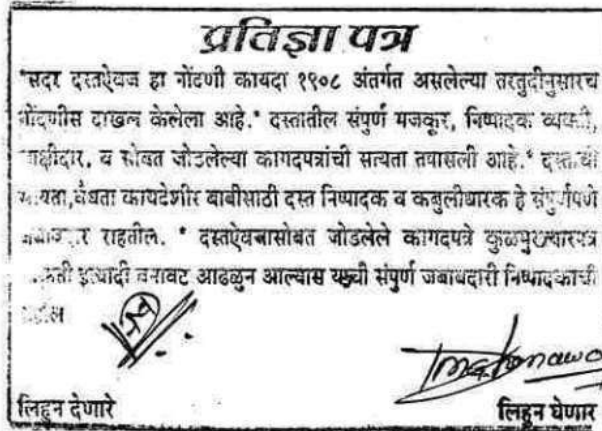 प्रतिज्ञा पत्र
"सदर दस्तऐवज हा नोंदणी कायदा १९०८ अंतर्गत असलेल्या तरतुदीनुसारच
नोंदणीस दाखल केलेला आहे.* दस्तातील संपुर्ण मजकूर, निष्पादक व्यक्ती,
साक्षीदार, व सोबत जोडलेल्या कागदपत्रांची सत्यता तपासली आहे.* दस्ताची
सत्यता,वैधता कायदेशीर बाबीसाठी दस्त निष्पादक व कबुलीधारक हे संपुर्णपणे
जबाबदार राहतील. * दस्तऐवजासोबत जोडलेले कागदपत्रे कुळमुखत्यारपत्र
इत्यादी बनावट आढळुन आल्यास याची संपुर्ण जबाबदारी निष्पादकाची
लिहुन देणारे
लिहुन घेणार